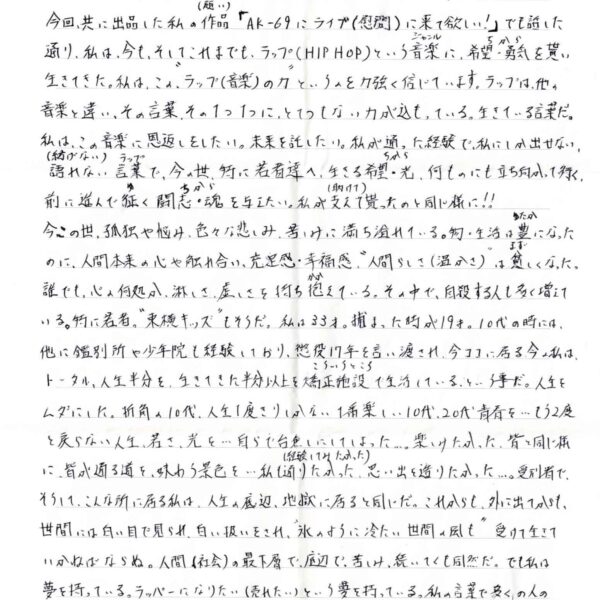 (願い)
今回、共に出品した私の作品「AK-69にライブ(慰問)に来て欲しい!」でも話した
ジャンル
通り、私は、今も、そしてこれまでも、ラップ(HIP HOP)という音楽に、希望・勇気を貰い
生きてきた。私は、この、"ラップ(音楽)の力"というものを強く信じています。ラップは、他の
音楽と違い、その言葉、その1つ1つに、とてつもない力が込もっている。生きている言葉だ。
私は、この音楽に恩返しをしたい。未来を託したい。私が通った経験で、私にしか出せない、
(紡げない) ラップ ちから
語れない言葉で、今の世、特に若者達へ、生きる希望・光、何ものにも立ち向かって行く、
ゆ ちから (助けて)
前に進んで征く闘志・魂を与えたい。私が支えて貰ったのと同じ様に!!
ゆたか
今この世、孤独や悩み、色々な悲しみ、苦しみに満ち溢れている。物・生活は豊になった
まず
のに、人間本来の心や触れ合い、充足感・幸福感、"人間らしさ(温かさ)"は貧しくなった。
かか
誰でも、心の何処か、淋しさ、虚しさを持ち抱えている。その中で、自殺する人も多く増えて
いる。特に若者。"東横キッズ"もそうだ。私は33才。捕まった時が19才。10代の時には、
他に鑑別所や少年院も経験しており、懲役17年を言い渡され、今ココに居る今の私は、
こういうところ
トータル、人生半分を、生きてきた半分以上を矯正施設で生活している、という事だ。人生を
ムダにした。折角の10代、人生1度きりしかない1番楽しい10代、20代青春を…もう2度
と戻らない人生、若さ、光を…自らで台無しにしてしまった…。楽しみたかった、皆と同じ様
(経験してみたかった)
に、皆が通る道を、味わう景色を…私も通りたかった、思い出を造りたかった…。受刑者で、
そうして、こんな所に居る私は、人生の底辺、地獄に居ると同じだ。これからも、外に出てからも、
世間には白い目で見られ、白い扱いをされ、"氷のように冷たい世間の風も"受けて生きて
いかねばならぬ。人間(社会)の最下層で、底辺で、苦しみ、続いてくも同然だ。でも私は
夢を持っている。ラッパーになりたい(売れたい)という夢を持っている。私の言葉で多く、の人の